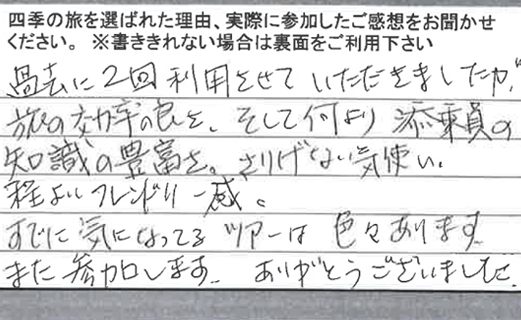 四季の旅を選ばれた理由、実際に参加したご感想をお聞かせ
ください。 ※書ききれない場合は裏面をご利用下さい
過去に2回利用させていただきましたが、
旅の効率の良さ、そして何より添乗員の
知識の豊富さ。さりげない気使い。
程よいフレンドリー感。
すでに気になってるツアーは色々あります。
また参加します。ありがとうございました。